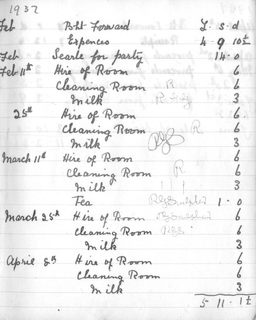 1932
Feb Bht Forward £ s d
Expences 4 9 10½
Feb Searle for party 14 0
Feb 11th Hire of Room 6
Cleaning Room 6
Milk 3
25th Hire of Room 6
Cleaning Room R 6
Milk 3
March 11th Hire of Room 6
Cleaning Room R 6
Milk 3
Tea 1 0
March 25th Hire of Room 6
Cleaning Room 6
Milk 3
April 8th Hire of Room 6
Cleaning Room 6
Milk 3
5 11 1½